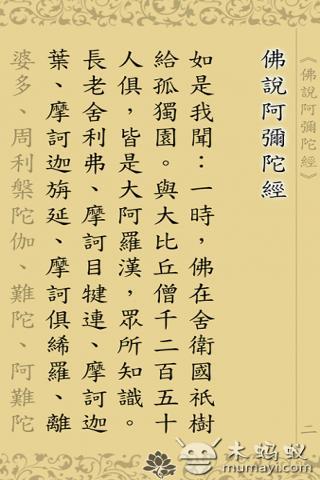 《佛說阿彌陀經》
二
佛說阿彌陀經
如是我聞：一時，佛在舍衛國祇樹
給孤獨園。與大比丘僧千二百五十
人俱，皆是大阿羅漢，眾所知識。
長老舍利弗、摩訶目犍連、摩訶迦
葉、摩訶迦旃延、摩訶俱絺羅、離
婆多、周利槃陀伽、難陀、阿難陀
木蚂蚁
mumayi.com